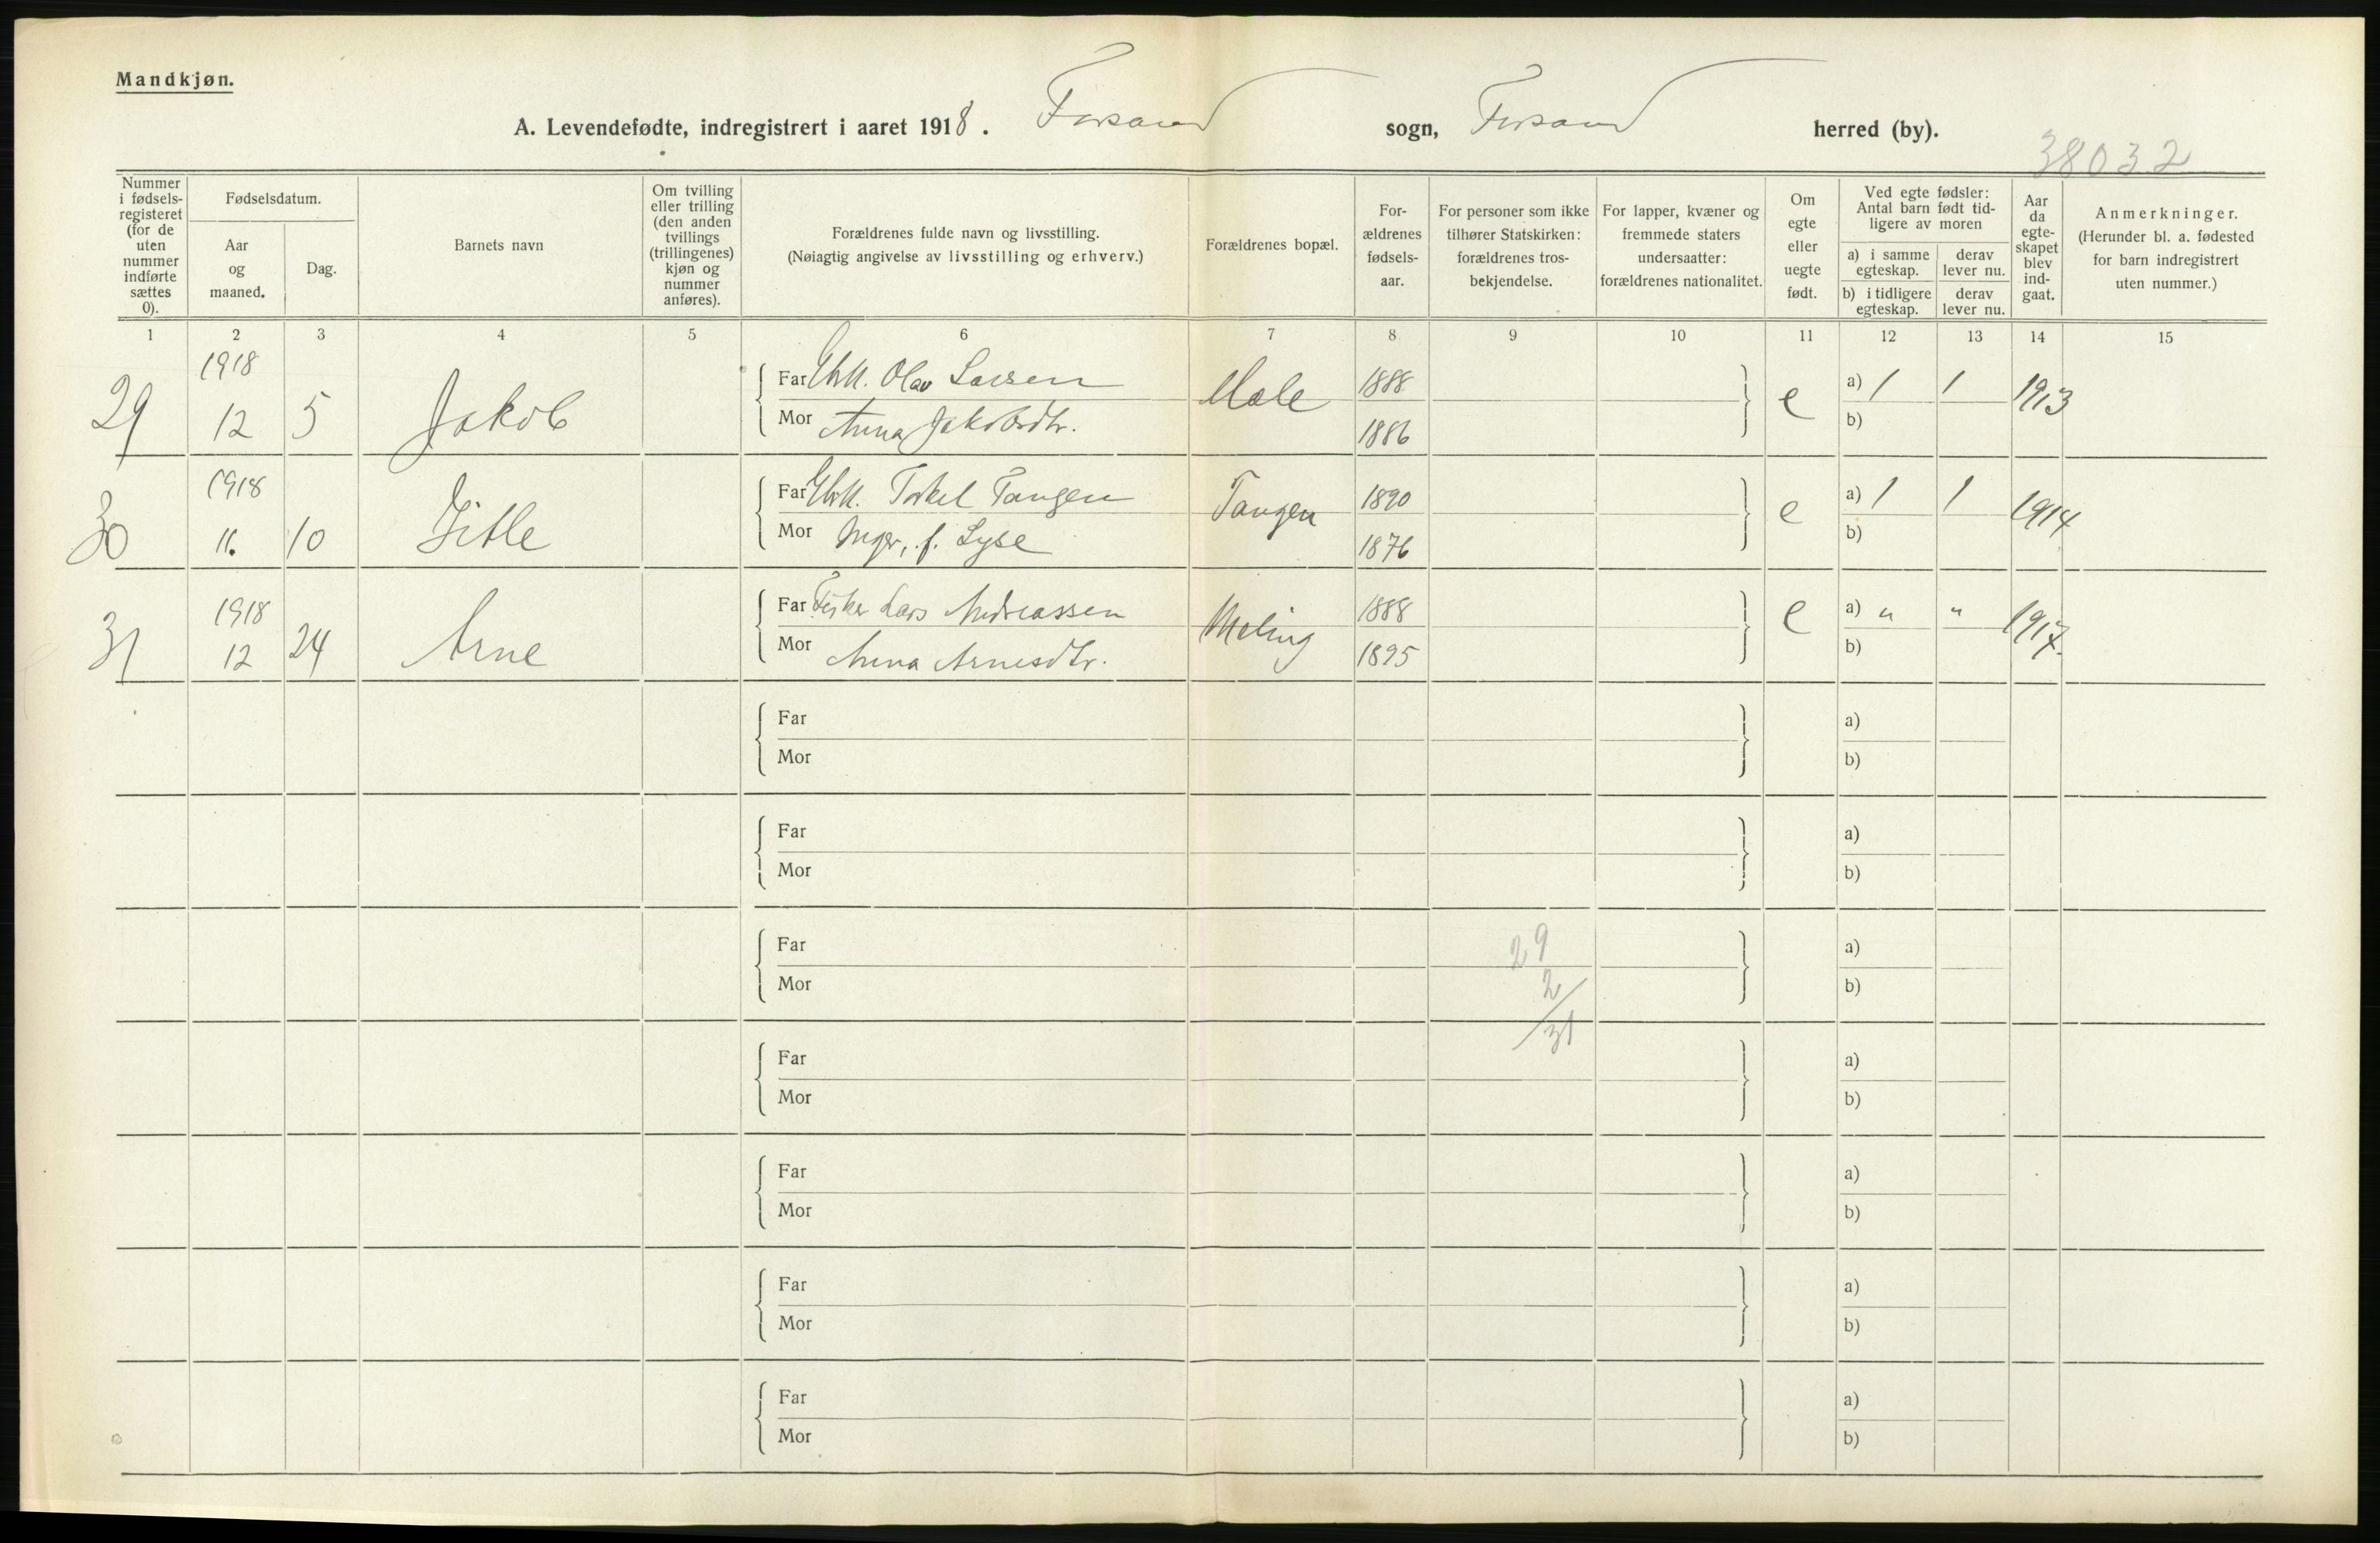 Mandkjøn.
A. Levendefødte, indregistrert i aaret 1918. Forsand sogn, Forsand herred (by).
38032
Nummer i fødsels-registeret (for de uten nummer indførte sættes 0).
Fødselsdatum.
Aar og maaned.
Dag.
Barnets navn
Om tvilling eller trilling (den anden tvillings (trillingenes) kjøn og nummer anføres).
Forældrenes fulde navn og livsstilling.
(Nøiagtig angivelse av livsstilling og erhverv.)
Forældrenes bopæl.
For-ældrenes fødsels-aar.
For personer som ikke tilhører Statskirken: forældrenes tros-bekjendelse.
For lapper, kvæner og fremmede staters undersaatter: forældrenes nationalitet.
Om egte eller uegte født.
Ved egte fødsler: Antal barn født tid-ligere av moren
a) i samme egteskap.
derav lever nu.
b) i tidligere egteskap.
derav lever nu.
Aar da egte-skapet blev ind-gaat.
Anmerkninger.
(Herunder bl. a. fødested for barn indregistrert uten nummer.)
1 2 3 4 5 6 7 8 9 10 11 12 13 14 15
29 1918 12 5 Jakob
Far Gbr. Olav Larsen Mæle 1888 e a) 1 1 1913
Mor Anna Jakobsdtr. 1886 b)
30 1918 11. 10 Sitle
Far Gbr. Torkel Tangen Tangen 1890 e a) 1 1 1914
Mor Inger, f. Lyse 1876 b)
31 1918 12 24 Arne
Far Fisker Lars Andreassen Meling 1888 e a) " " 1917.
Mor Anna Arnesdtr. 1895 b)
Far a)
Mor b)
Far a)
Mor b)
Far 29 a)
Mor 2 b)
31
Far a)
Mor b)
Far a)
Mor b)
Far a)
Mor b)
Far a)
Mor b)